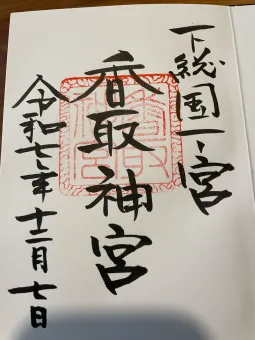 下総国一宮
香取神宮
令和七年十二月七日